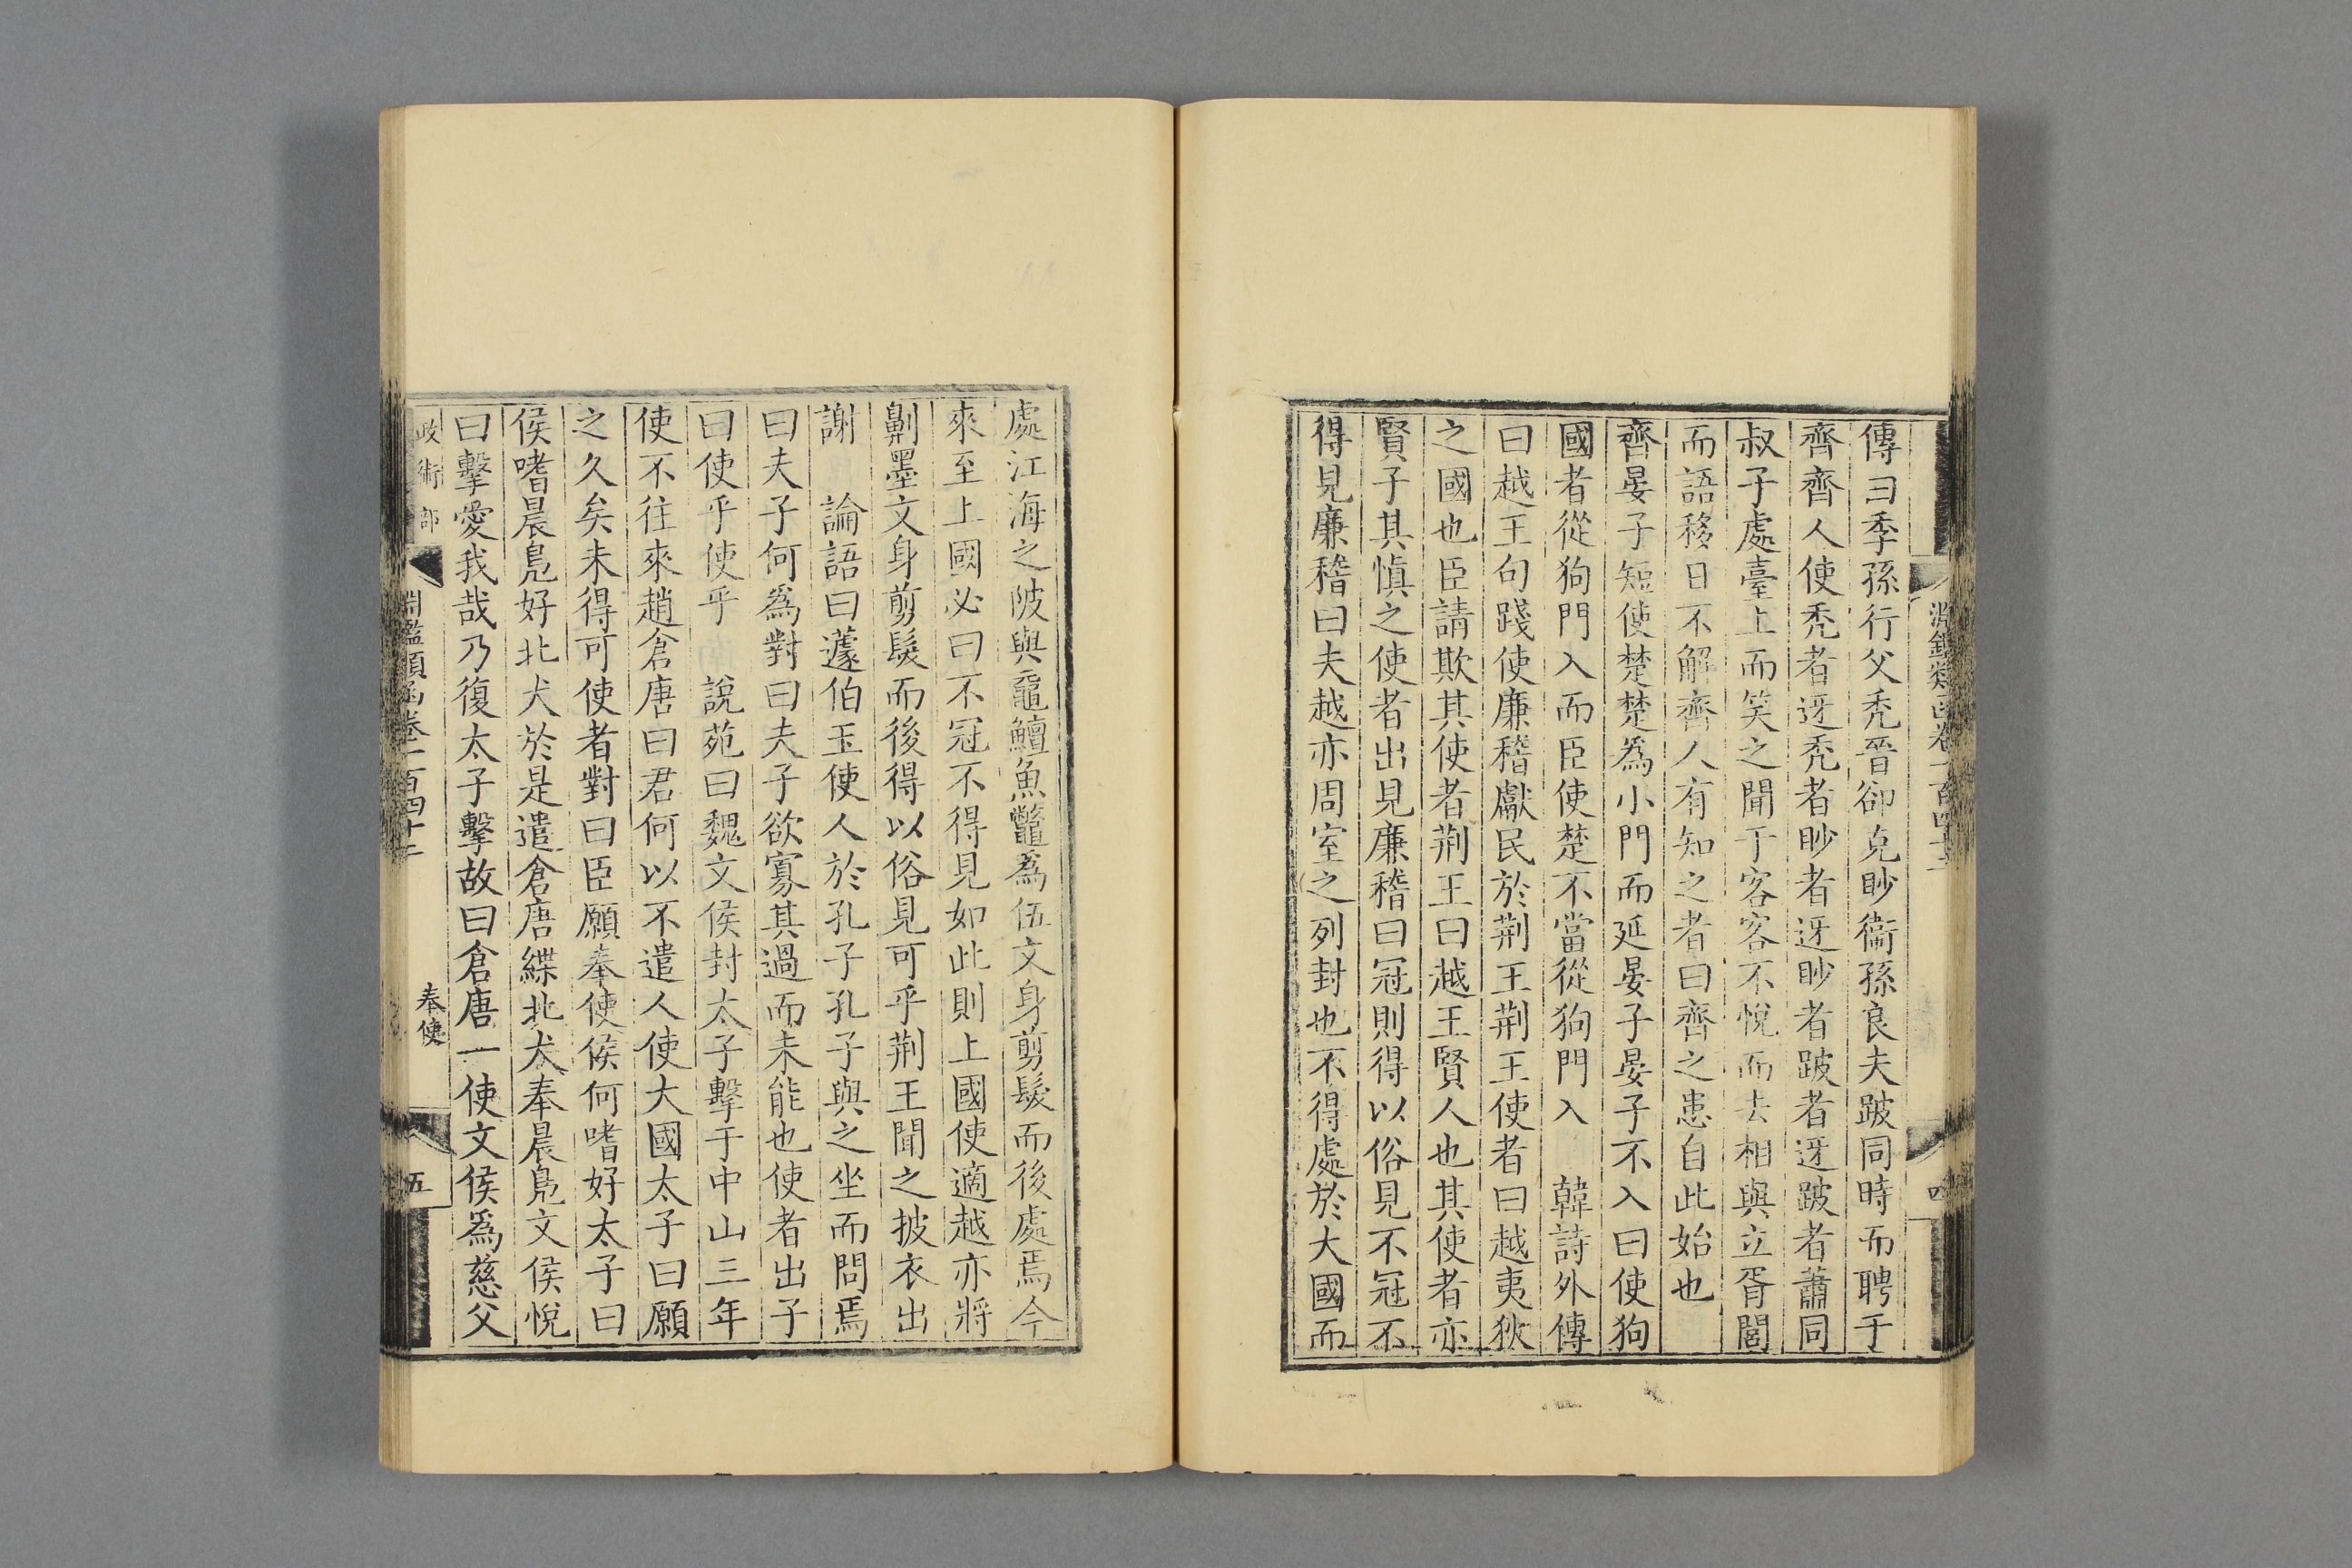 淵鑑類函卷一百四十二
四
傳曰季孫行父禿晉郤克眇衞孫良夫跛同時而聘于
齊齊人使禿者迓禿者眇者迓眇者跛者迓跛者蕭同
叔子處臺上而笑之聞于客客不悅而去相與立胥閭
而語移日不解齊人有知之者曰齊之患自此始也
齊晏子短使楚楚爲小門而延晏子晏子不入曰使狗
國者從狗門入而臣使楚不當從狗門入 韓詩外傳
曰越王句踐使廉稽獻民於荆王荆王使者曰越夷狄
之國也臣請欺其使者荆王曰越王賢人也其使者亦
賢子其愼之使者出見廉稽曰冠則得以俗見不冠不
得見廉稽曰夫越亦周室之列封也不得處於大國而
處江海之陂與黿鱣魚鼈爲伍文身剪髮而後處焉今
來至上國必曰不冠不得見如此則上國使適越亦將
劓墨文身剪髮而後得以俗見可乎荆王聞之披衣出
謝 論語曰蘧伯玉使人於孔子孔子與之坐而問焉
曰夫子何爲對曰夫子欲寡其過而未能也使者出子
曰使乎使乎 說苑曰魏文侯封太子擊于中山三年
使不往來趙倉唐曰君何以不遣人使大國太子曰願
之久矣未得可使者對曰臣願奉使侯何嗜好太子曰
侯嗜晨鳧好北犬於是遣倉唐緤北犬奉晨鳧文侯悅
曰擊愛我哉乃復太子擊故曰倉唐一使文侯爲慈父
政術部
淵鑑類函卷一百四十二
奉使
五